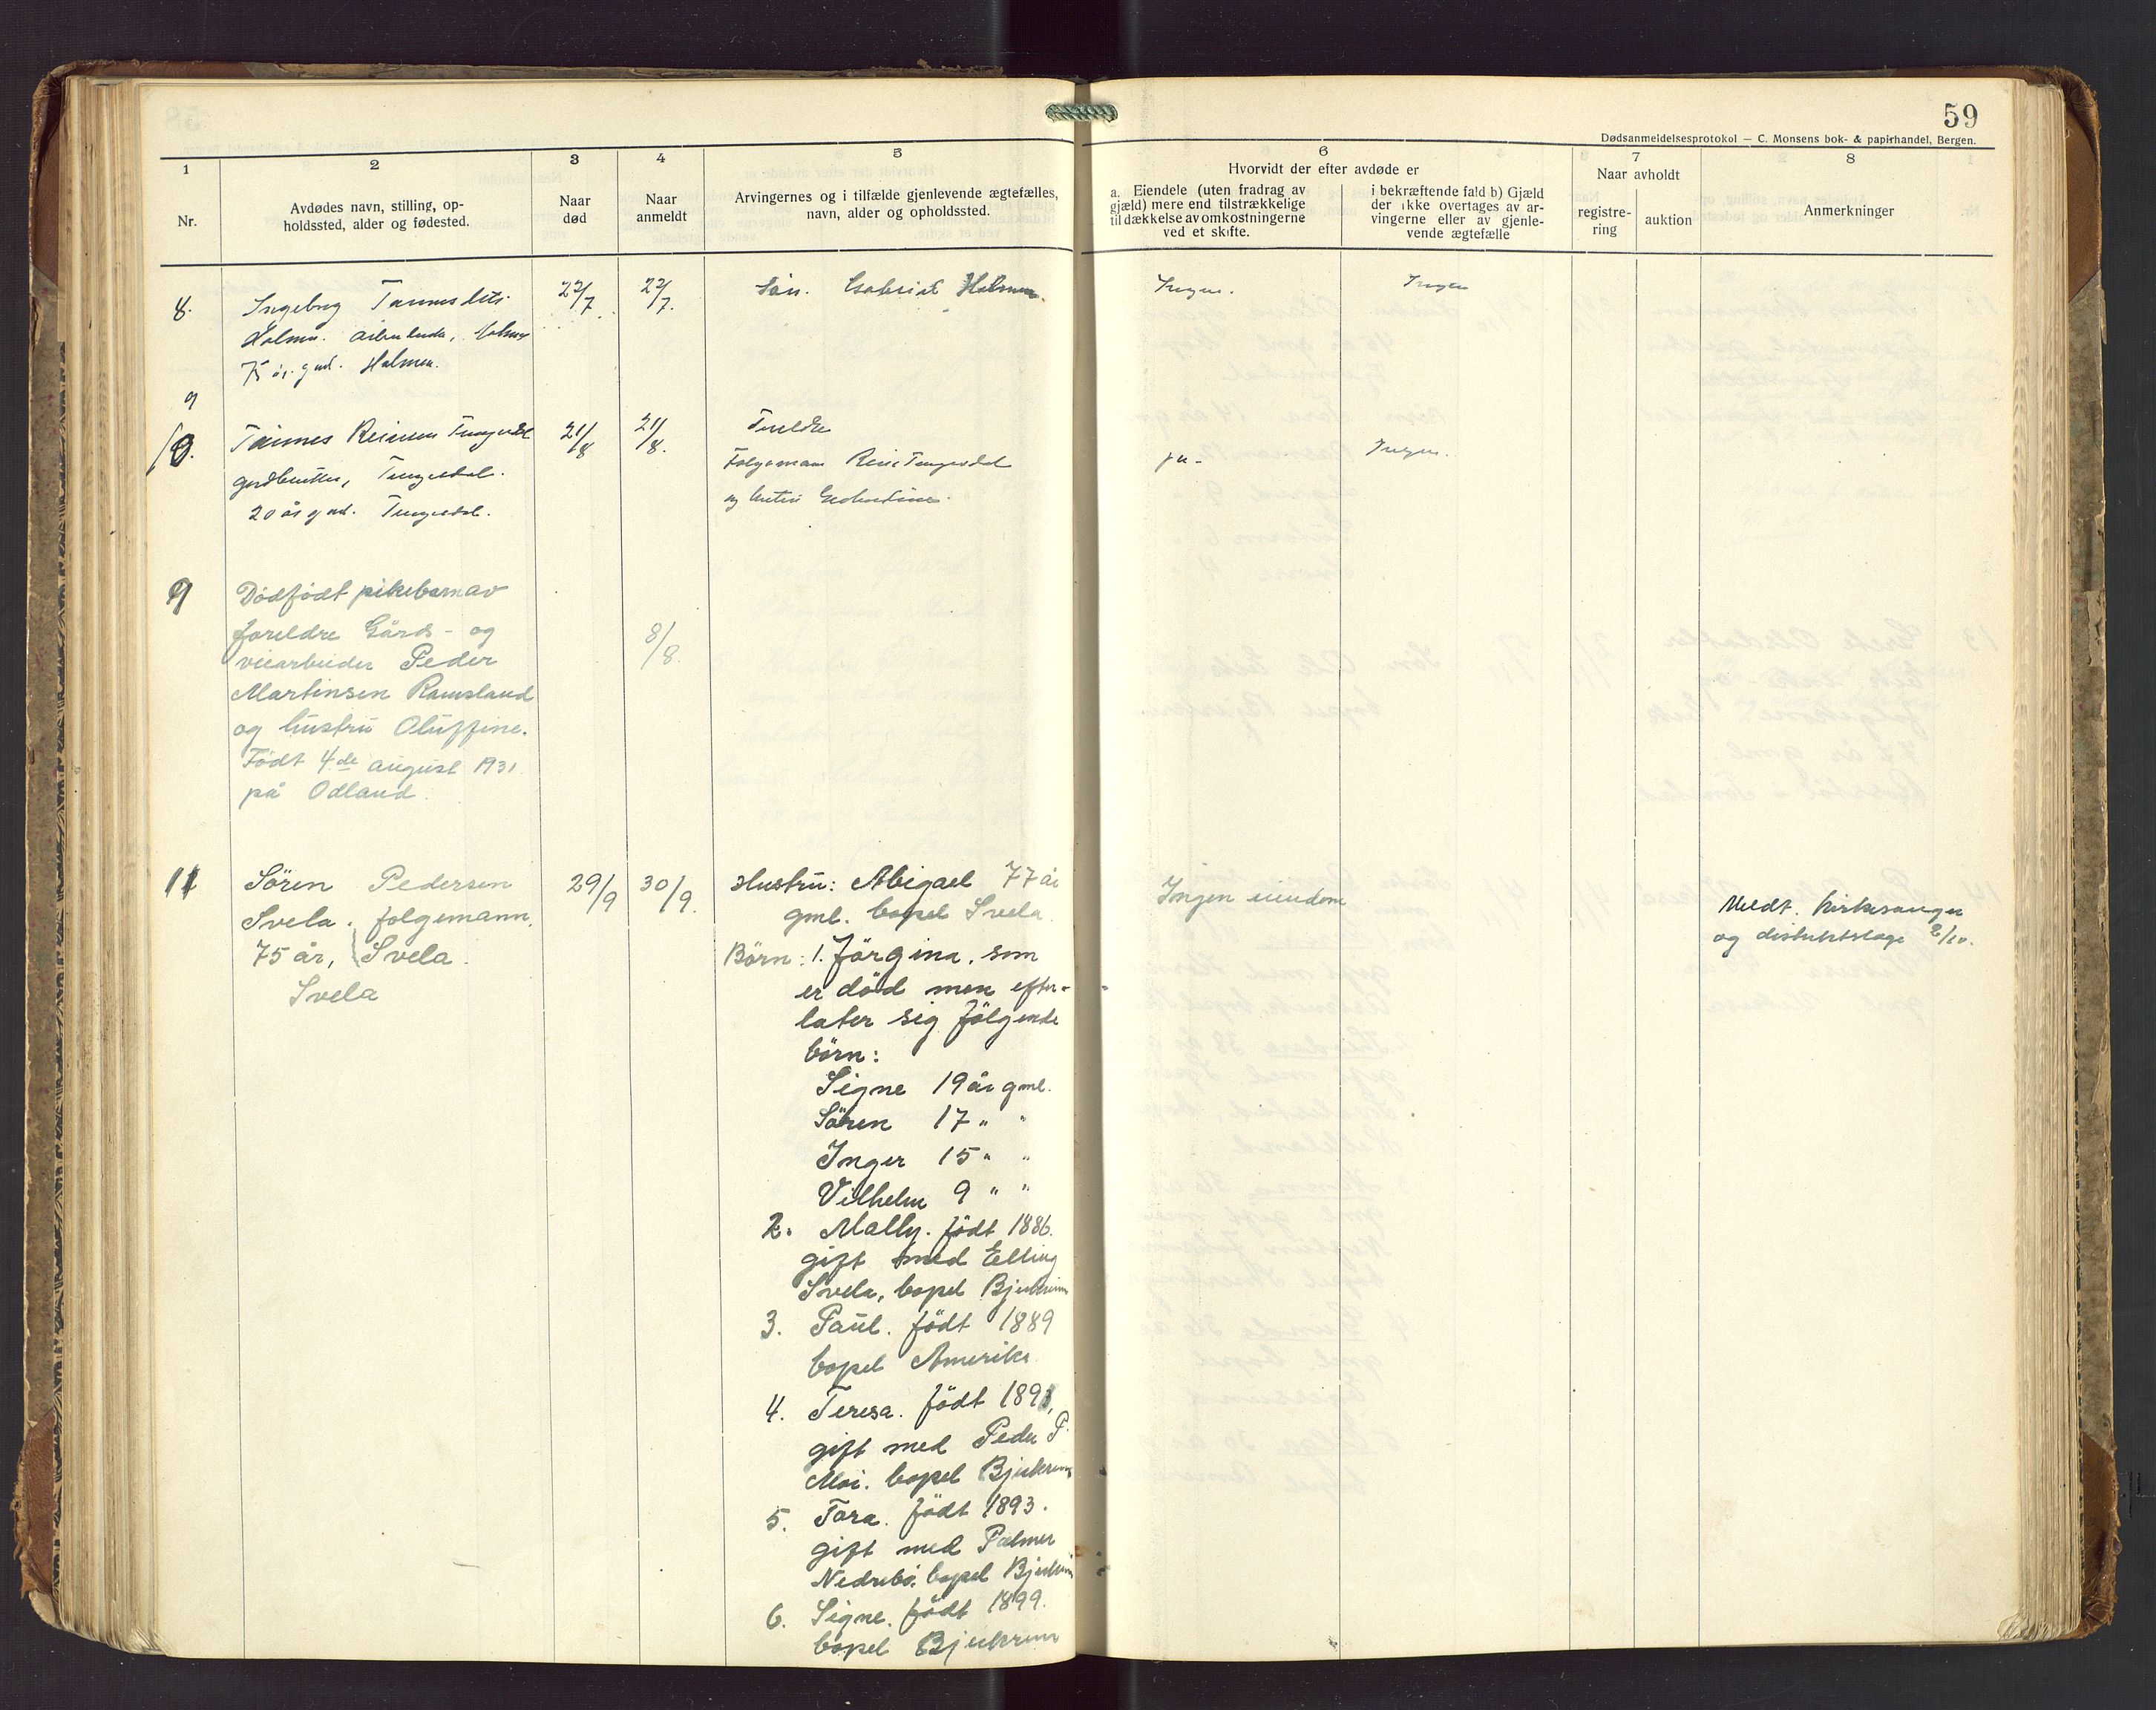 59
Dødsanmeldelsesprotokol — C. Monsens bok- & papirhandel, Bergen.
1
Nr.
2
Avdødes navn, stilling, op-
holdssted, alder og fødested.
3
Naar
død
4
Naar
anmeldt
5
Arvingernes og i tilfælde gjenlevende ægtefælles,
navn, alder og opholdssted.
6
Hvorvidt der efter avdøde er
a. Eiendele (uten fradrag av
gjæld) mere end tilstrækkelige
til dækkelse av omkostningerne
ved et skifte.
i bekræftende fald b) Gjæld
der ikke overtages av ar-
vingerne eller av gjenle-
vende ægtefælle
7
Naar avholdt
registre-
ring
auktion
8
Anmerkninger
8.
Ingeborg
Holmen.
75 år gml. Holmen.
22/7
22/7.
Sön. Gabriel Holmen.
Ingen.
Ingen
9
10.
Tönnes Reinesen Tengesdal
gardbruker, Tengesdal.
20 år gml. Tengesdal.
21/8
21/8.
Foreldre
Folgemann Reine Tengesdal
og hustru
ja-
Ingen.
9
Dödfödt pikebarn av
foreldre Gårds- og
veiarbeider Peder
Martinsen Ramsland
og hustru Oluffine.
Födt 4de august 1931
på Odland.
8/8.
11
Sören Pedersen
Svela. folgemann.
75 år, Svela.
Svela
29/9
30/9.
Hustru: Abigael 77 år
gml. bopel Svela.
Börn: 1. Jörgina. som
er död men efter-
later sig fölgende
börn:
Signe 19 år gml.
Sören 17 " "
Inger 15 " "
Vilhelm 9 " "
2. Mally. födt 1886.
gift med Elling
Svela, bopel Bjerkreim
3. Paul. födt 1889
bopel Amerika
4. Teresa. födt 1891,
gift med Peder P.
Moi. bopel Bjerkreim
5. Tora. födt 1893.
gift med Palmer
Nedrebö. bopel Bjerkreim
6. Signe. födt 1899.
bopel Bjerkreim
Ingen eiendom
Meldt. kirkesanger
og distriktslege 2/10.